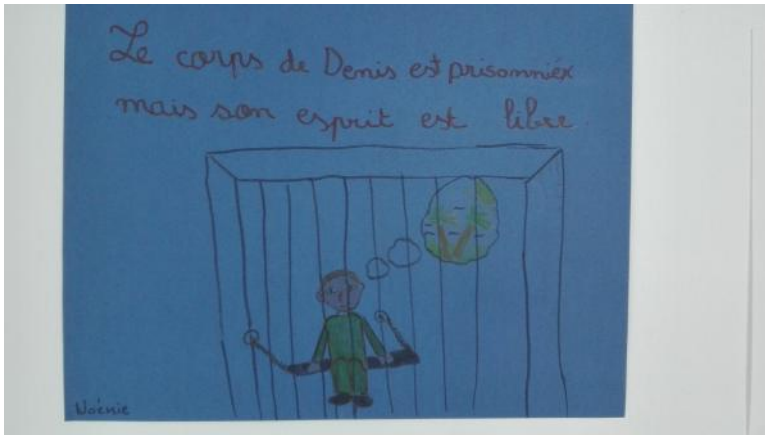 Le corps de Denis est prisonnier
mais son esprit est libre.
Noémie